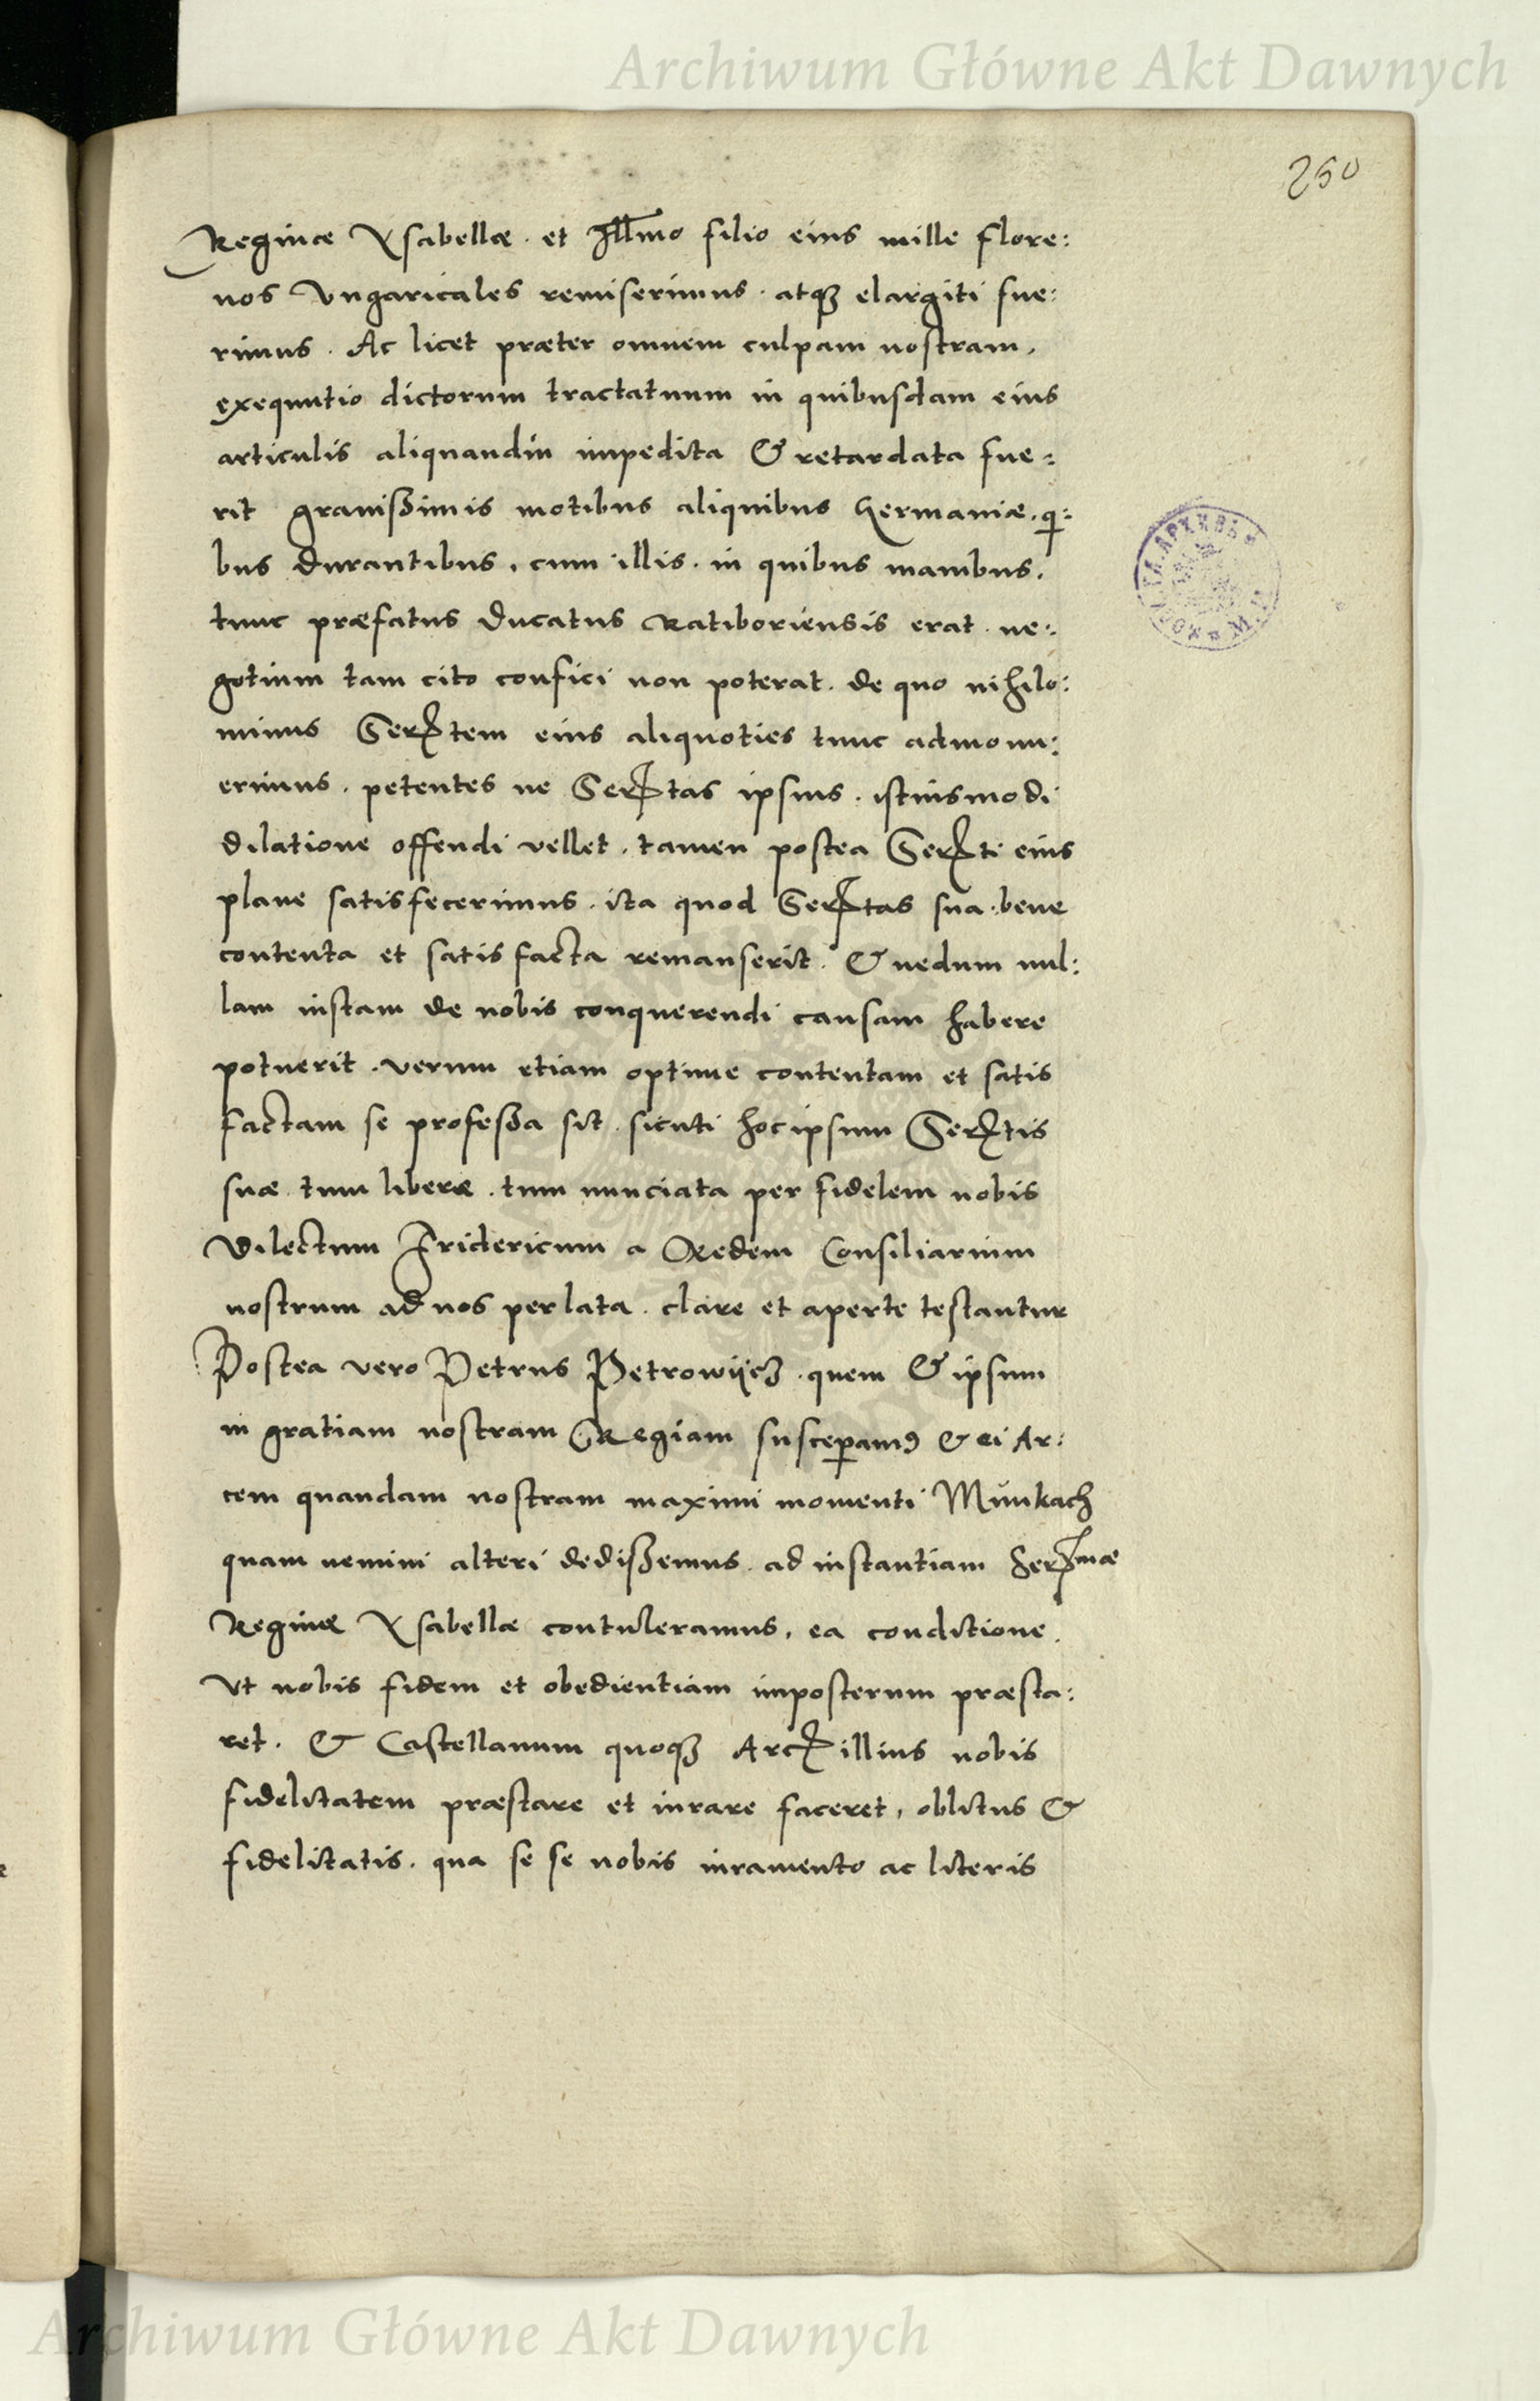 Archiwum Główne Akt Dawnych
250
Reginæ Ysabellæ. et Illmo filio eius mille flore:
nos Vngaricales remiserimus. atq3 elargiti fue:
rimus. Ac licet præter omnem culpam nostram,
exequutio dictorum tractatuum in quibusdam eius
articulis aliquandiu impedita & retardata fue:
rit grauißimis motibus aliquibus Germaniæ. qi:
bus durantibus, cum illis. in quibus manibus.
tunc præfatus ducatus Ratiboriensis erat. ne:
gotium tam cito confici non poterat. de quo nihilo:
minus Sertem eius aliquoties tunc admonu:
erimus. petentes ne Sertas ipsius. istiusmodi
dilatione offendi vellet. tamen postea Serti eius
plane satisfecerimus. ita quod Sertas sua. bene
contenta et satis facta remanserit. & nedum nul:
lam iustam de nobis conquerendi causam habere
potuerit. verum etiam optime contentam et satis
factam se profeßa sit. sicuti hoc ipsum Sertis
suæ tum literæ. tum nunciata per fidelem nobis
dilectum Fridericum a Redern Consiliarium
nostrum ad nos perlata. clare et aperte testantur
Postea vero Petrus Petrowijcz. quem & ipsum
in gratiam nostram Regiam susceperamus & ei Ar:
cem quandam nostram maximi momenti Munkach
quam nemini alteri dedißemus. ad instantiam Sermæ
Reginæ Ysabellæ contuleramus, ea conditione.
Vt nobis fidem et obedientiam imposterum præsta:
ret. & Castellanum quoq3 Arcis illius nobis
fidelitatem præstare et iurare faceret, oblitus &
fidelitatis. qua se se nobis iuramento ac literis
Archiwum Główne Akt Dawnych